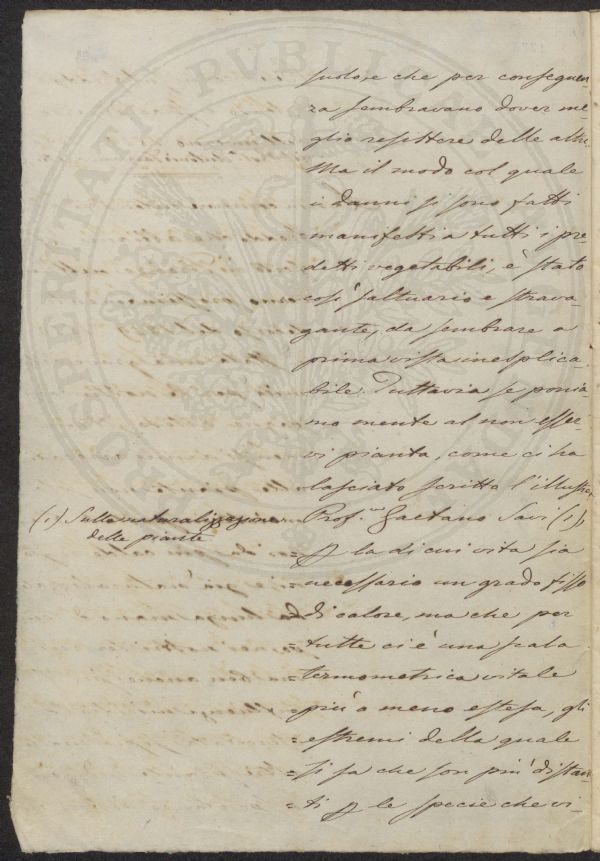 suolo, e che per conseguen
za sembravano dover me
glio resistere delle altre.
Ma il modo col quale
i danni si sono fatti
manifesti a tutti i pre
detti vegetabili, è stato
così saltuario e strava
gante, da sembrare a
prima vista inesplica
bile. Tuttavia se ponia
mo mente al non esser
vi pianta, come ci ha
lasciato scritto l'illustre
Prof. Gaetano Savi (1),
(1) Sulla naturalizzazione
delle piante
la di cui vita sia
necessario un grado fisso
di calore, ma che per
tutte ci è una scala
termometrica vitale
più o meno estesa, gli
estremi della quale
si sa che son più distan
ti le specie che vi-
PROSPERITATI PVBLICAE AVGENDAE